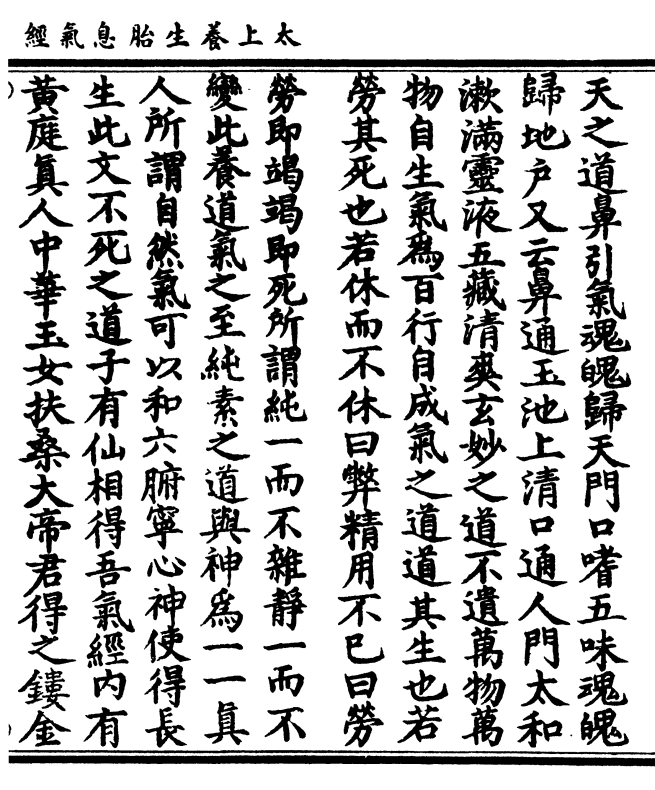 太上養生胎息氣經
天之道鼻引氣魂魄歸天門口嗜五味魂魄
歸地户又云鼻通玉池上清口通人門太和
漱滿靈液五藏清爽玄妙之道不遺萬物萬
物自生氣爲百行自成氣之道道其生也若
勞其死也若休而不休曰弊精用不已曰勞
勞即竭竭即死所謂純一而不雜靜一而不
變此養道氣之至純素之道與神爲一一真
人所謂自然氣可以和六腑寧心神使得長
生此文不死之道子有仙相得吾氣經内有
黄庭真人中華玉女扶桑大帝君得之鏤金